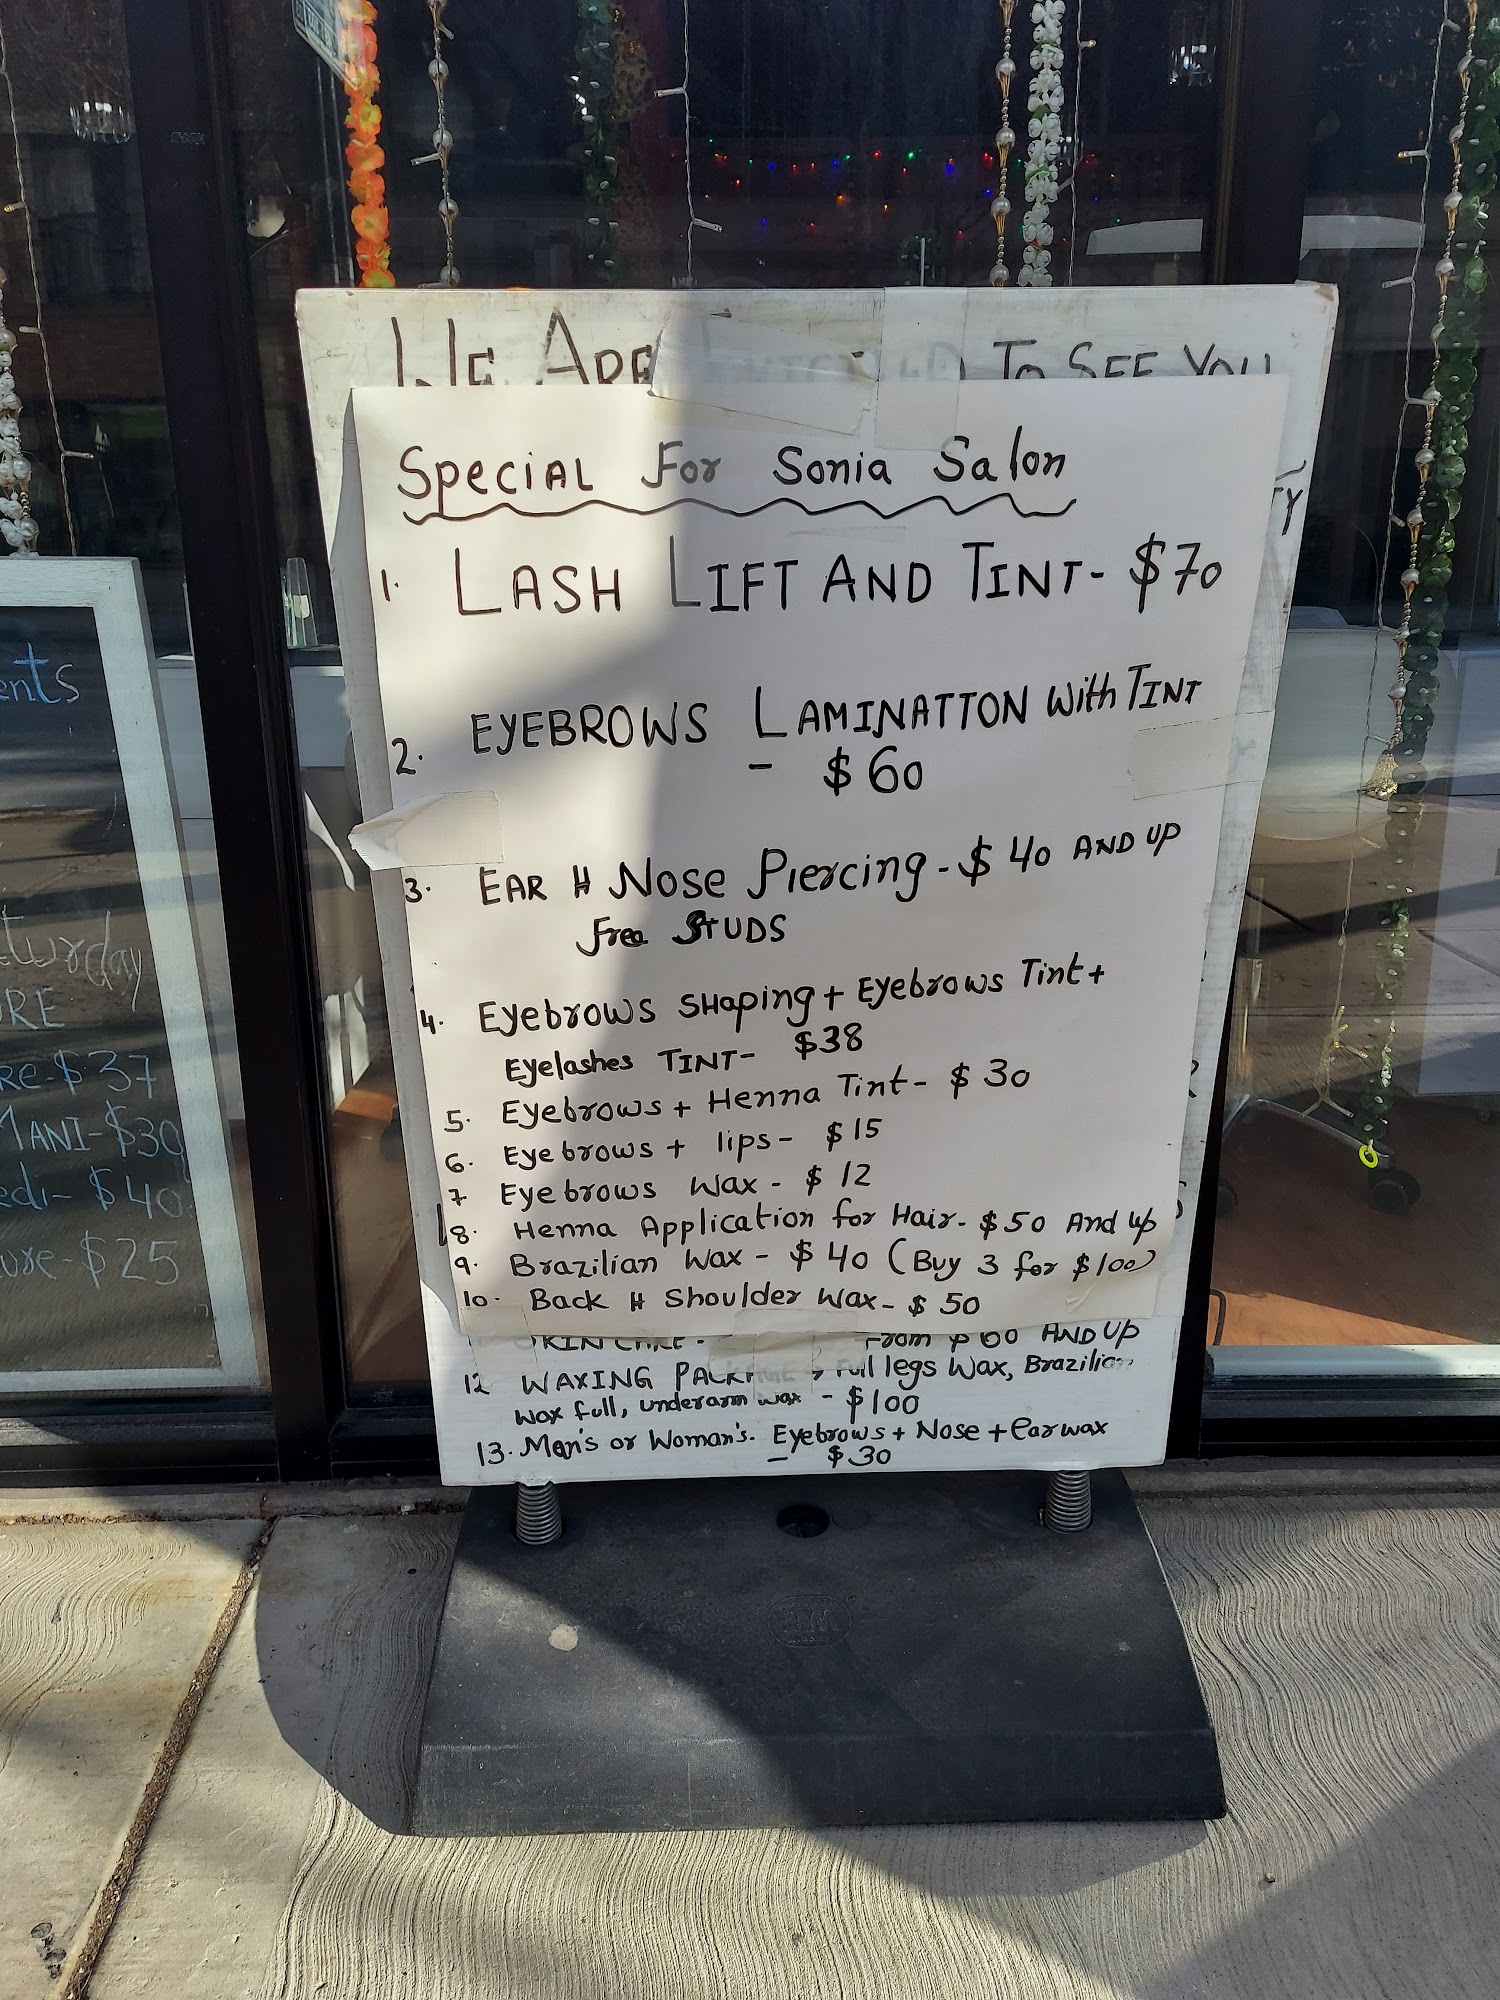 WE ARE TO SEE YOU
Special For Sonia Salon
1. LASH LIFT AND TINT- $70
2. EYEBROWS LAMINATTON With TINT
- $60
3. EAR & Nose Piercing - $40 AND UP
free STUDS
4. Eyebrows SHaping + Eyebrows Tint +
Eyelashes TINT- $38
5. Eyebrows + Henna Tint- $30
6. Eyebrows + lips- $15
7 Eyebrows Wax - $12
8. Henna Application for Hair- $50 And up
9. Brazilian Wax - $40 (Buy 3 for $100)
10. Back & Shoulder Wax- $50
SKIN CARE - From $60 AND UP
12 WAXING PACKAGE, Full legs Wax, Brazilian
Wax full, underarm wax - $100
13. Men's or Woman's. Eyebrows + Nose + Ear wax
- $30
TY
ents
turday
URE
RE-$37
MANI-$30
edi- $40
ure-$25